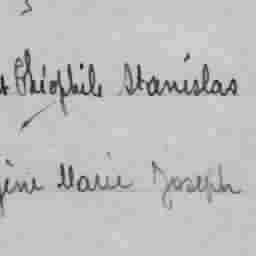 Théophile Stanislas
Marie Joseph